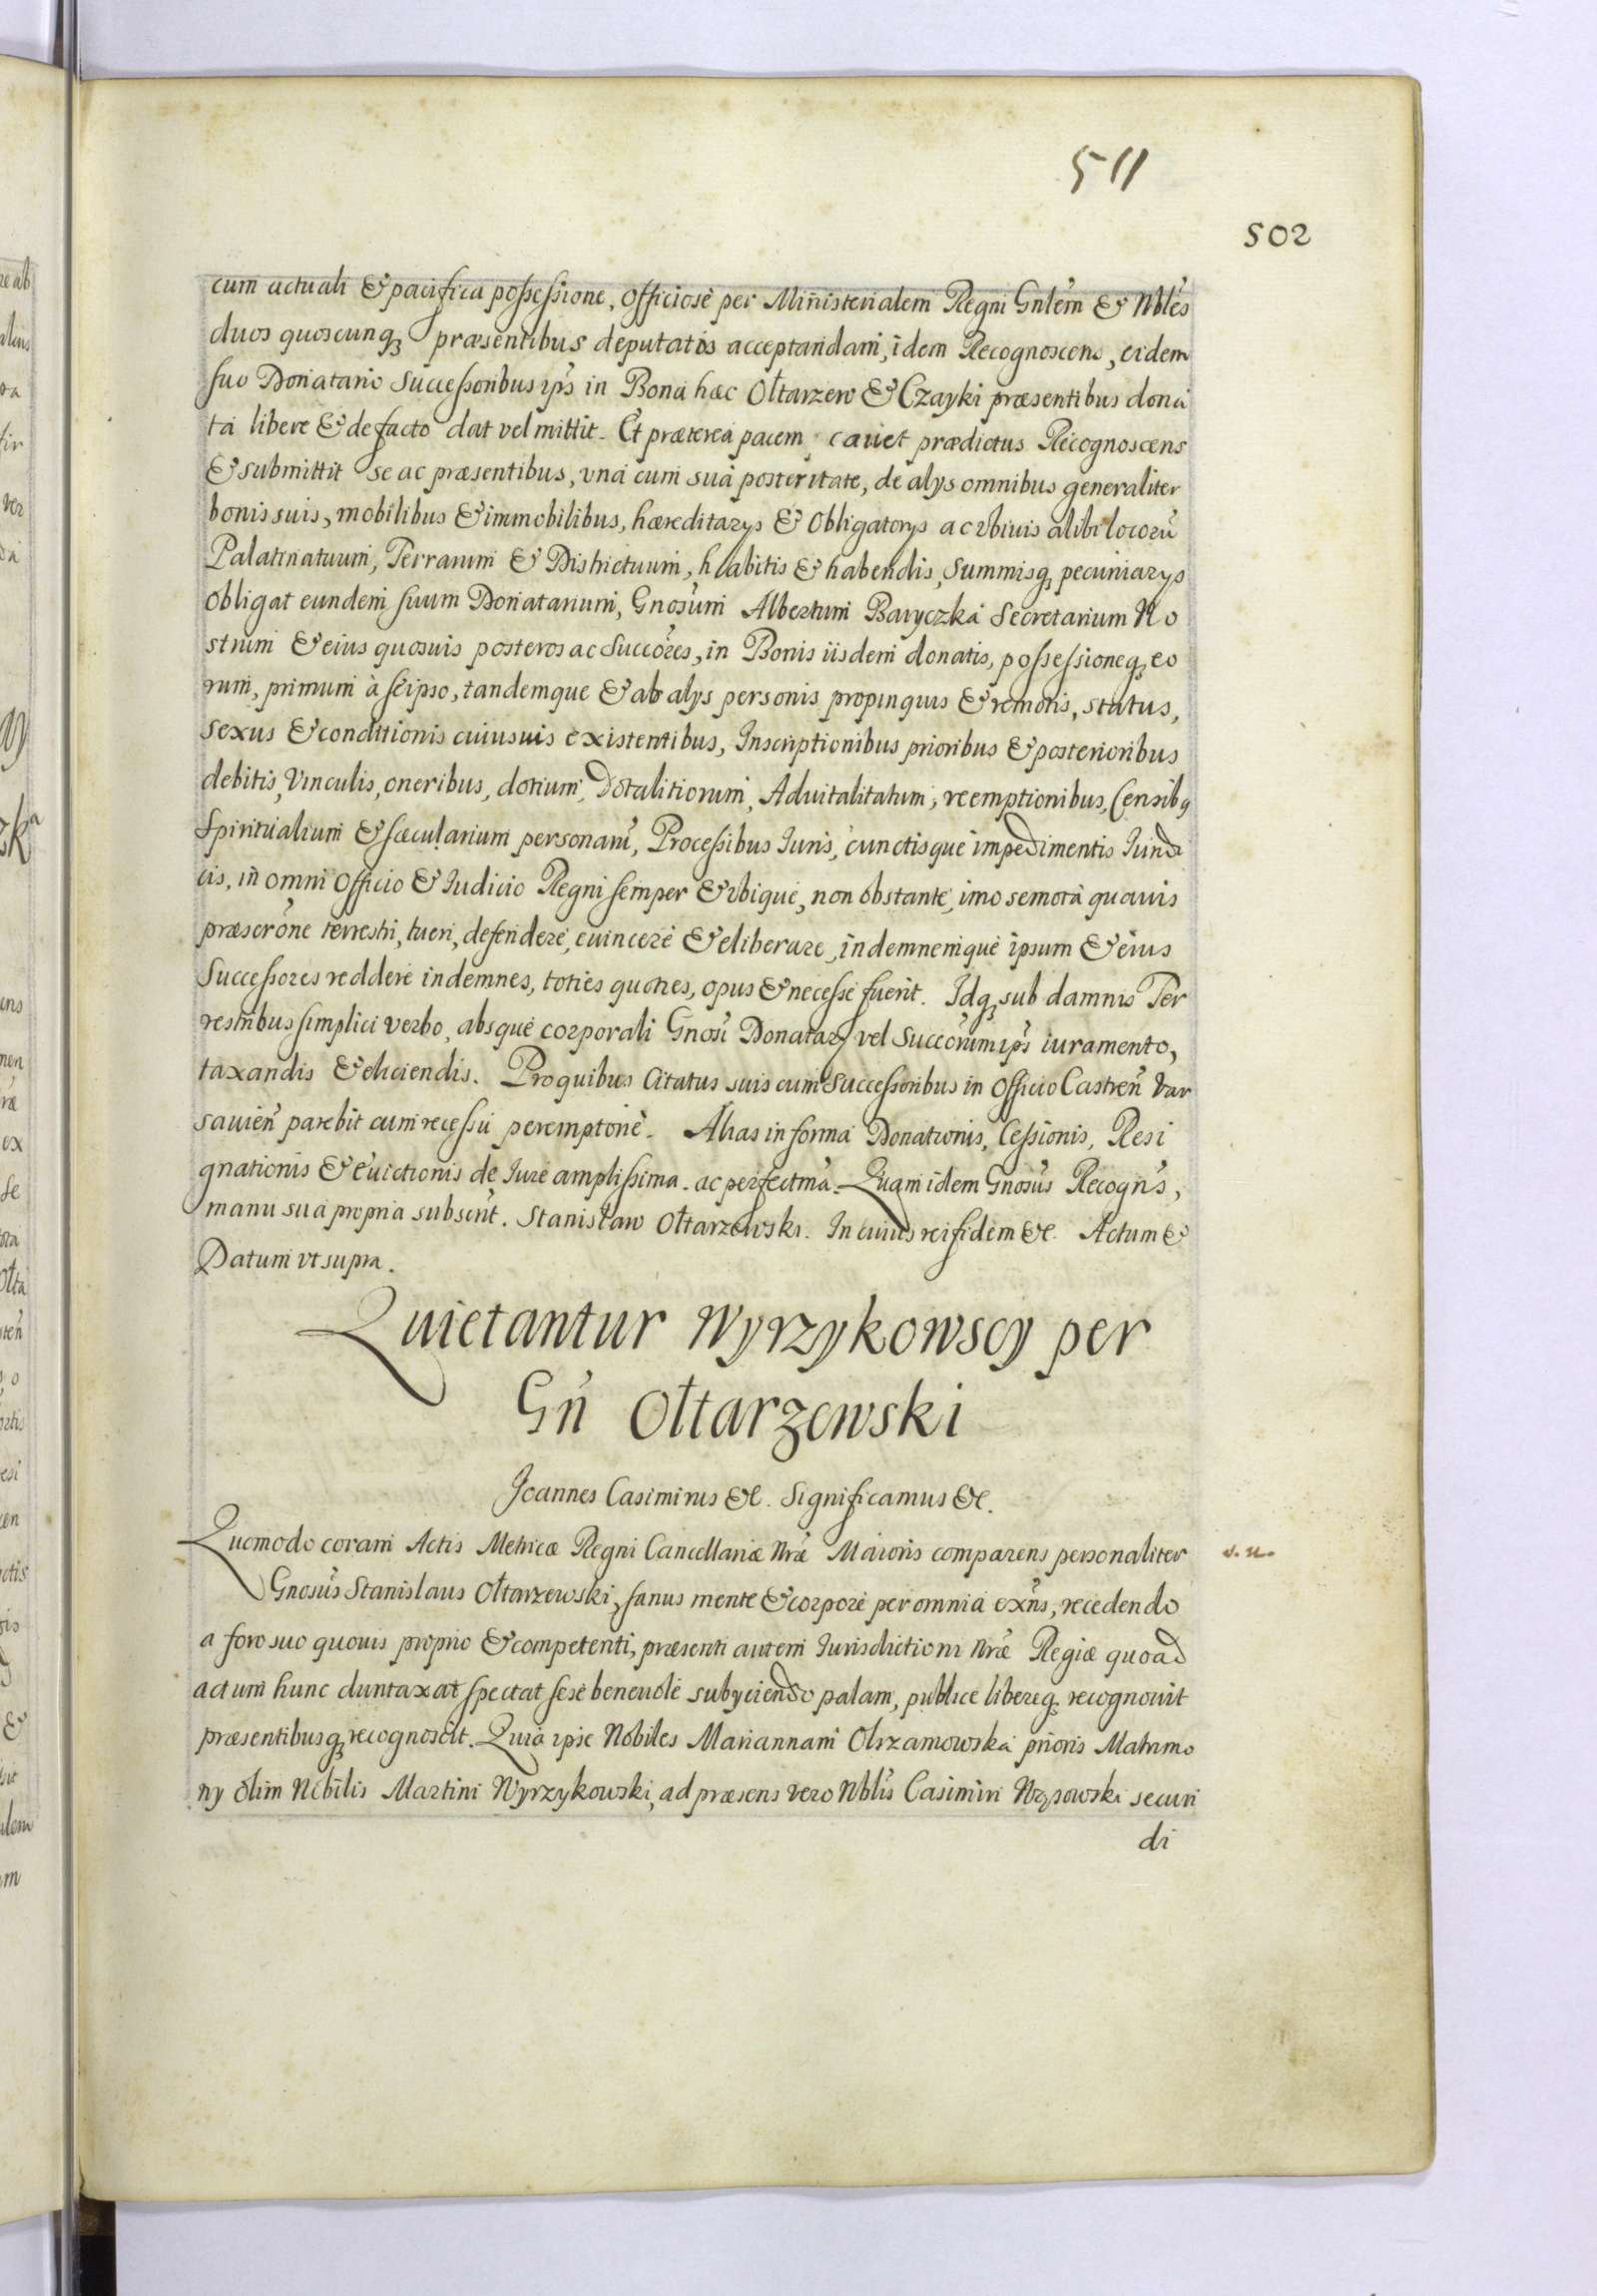 511
502
cum actuali & pacifica possessione, officiosè per Ministerialem Regni Gnlem & Nbles
duos quoscunq præsentibus deputatos acceptandam, idem Recognoscens, eidem
suo Donatario Successoribus ips in Bona hæc Ołtarzew & Czayki præsentibus dona
ta libere & de facto dat vel mittit. Et præterea pacem cauet prædictus Recognoscens
& submittit se ac præsentibus, vna cum sua posteritate, de alys omnibus generaliter
bonis suis, mobilibus & immobilibus, hæreditarys & Obligatorys ac vbiuis alibi locorũ
Palatinatuum, Terrarum & Districtuum, habitis & habendis, Summisq pecuniarys
Obligat eundem suum Donatarium, Gnosum Albertum Baryczka Secretarium No
strum & eius quosuis posteros ac Succores, in Bonis iisdem donatis, possessioneq eo
rum, primum à seipso, tandemque & ab alys personis propinquis & remotis, status,
sexus & conditionis cuiusuis existentibus, Inscriptionibus prioribus & posterioribus
debitis, Vinculis, oneribus, dotium, Dotalitiorum, Aduitalitatum, reemptionibus, Censibq
Spiritualium & sæcularium personarũ, Processibus Iuris, cunctisque impedimentis Iuridi
cis, in omni Officio & Iudicio Regni semper & vbique, non obstante, imo semota quauis
præscrone terrestri, tueri, defendere, euincere & eliberare, indemnemque ipsum & eius
Successores reddere indemnes, toties quoties, opus & necesse fuerit. Idq sub damnis Ter
restribus simplici verbo, absque corporali Gnosi Donatary vel Succorum ips iuramento,
taxandis & eliciendis. Pro quibus Citatus suis cum Successoribus in Officio Castren Var
sauien parebit cum recessu peremptoriè. Alias in forma Donationis, Cessionis, Resi
gnationis & euictionis de Iure amplissima ac perfectma. Quam idem Gnosus Recogns,
manu sua propria subscrit. Stanisław Ołtarzewski. In cuius rei fidem &c. Actum &
Datum vt supra.
Quietantur Wyrzykowscy per
Gn Ołtarzewski
Joannes Casimirus &c. Significamus &c.
Quomodo coram Actis Metricæ Regni Cancellariæ Nræ Maioris comparens personaliter
v. u.
Gnosus Stanislaus Ołtarzewski, sanus mente & corpore per omnia exns, recedendo
a foro suo quouis proprio & competenti, præsenti autem Iurisdictioni Nræ Regiæ quoad
actum hunc duntaxat spectat sese beneuolè subyciendo palam, publice libereq recognouit
præsentibusq recognoscit. Quia ipse Nobiles Mariannam Olszamowska prioris Matrimo
ny olim Nobilis Martini Wyrzykowski, ad præsens vero Nblis Casimiri secun
di